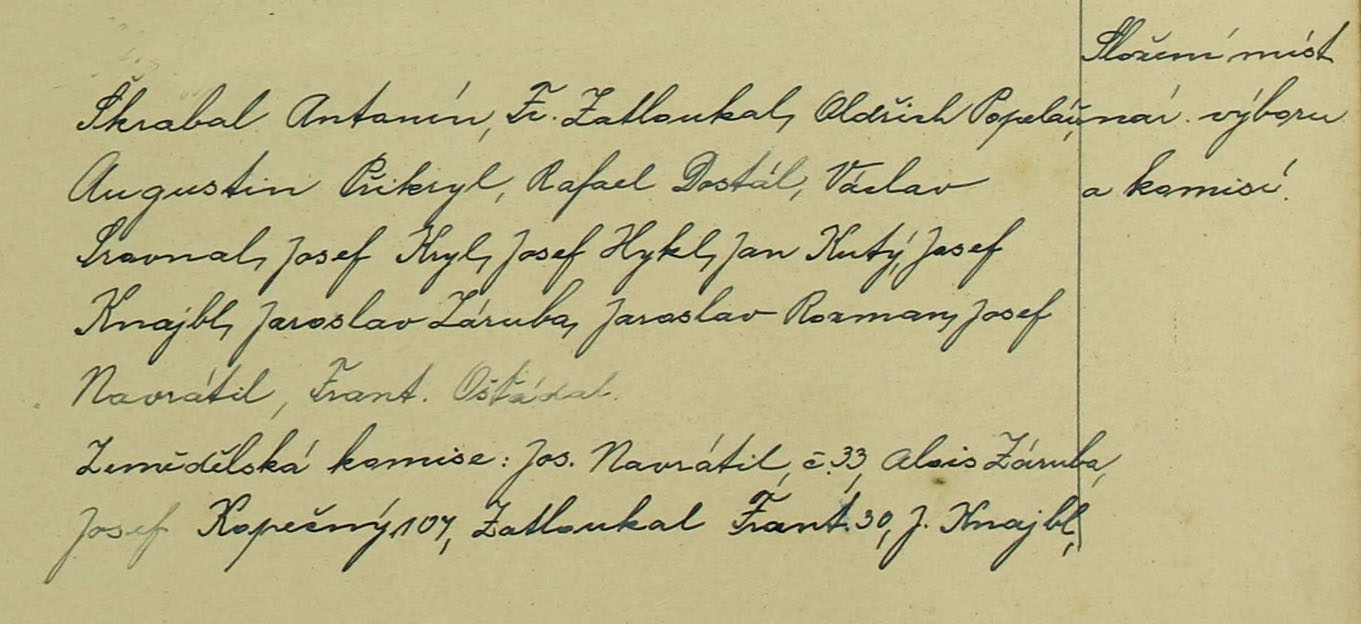 Škrabal Antonín, Fr. Zatloukal, Oldřich Popelář,
Augustin Přikryl, Rafael Dostál, Václav
Srovnal, Josef Kryl, Josef Hykl, Jan Kutý, Josef
Knajbl, Jaroslav Záruba, Jaroslav Rozman, Josef
Navrátil, Frant. Ošťádal.
Zemědělská komise: Jos. Navrátil, č. 33, Alois Záruba,
Josef Kopečný 107, Zatloukal Frant. 30, J. Knajbl,
Složení míst
nár. výboru
a komisí.